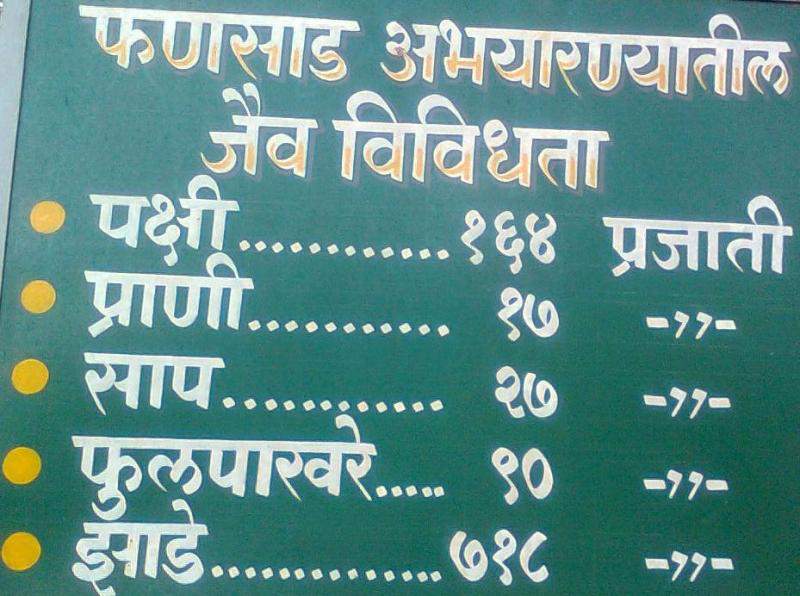 फणसाड अभयारण्यातील
जैव विविधता
पक्षी............ १६४ प्रजाती
प्राणी............ १७ -,,-
साप............ २७ -,,-
फुलपाखरे..... ९० -,,-
झाडे.............. ७१८ -,,-